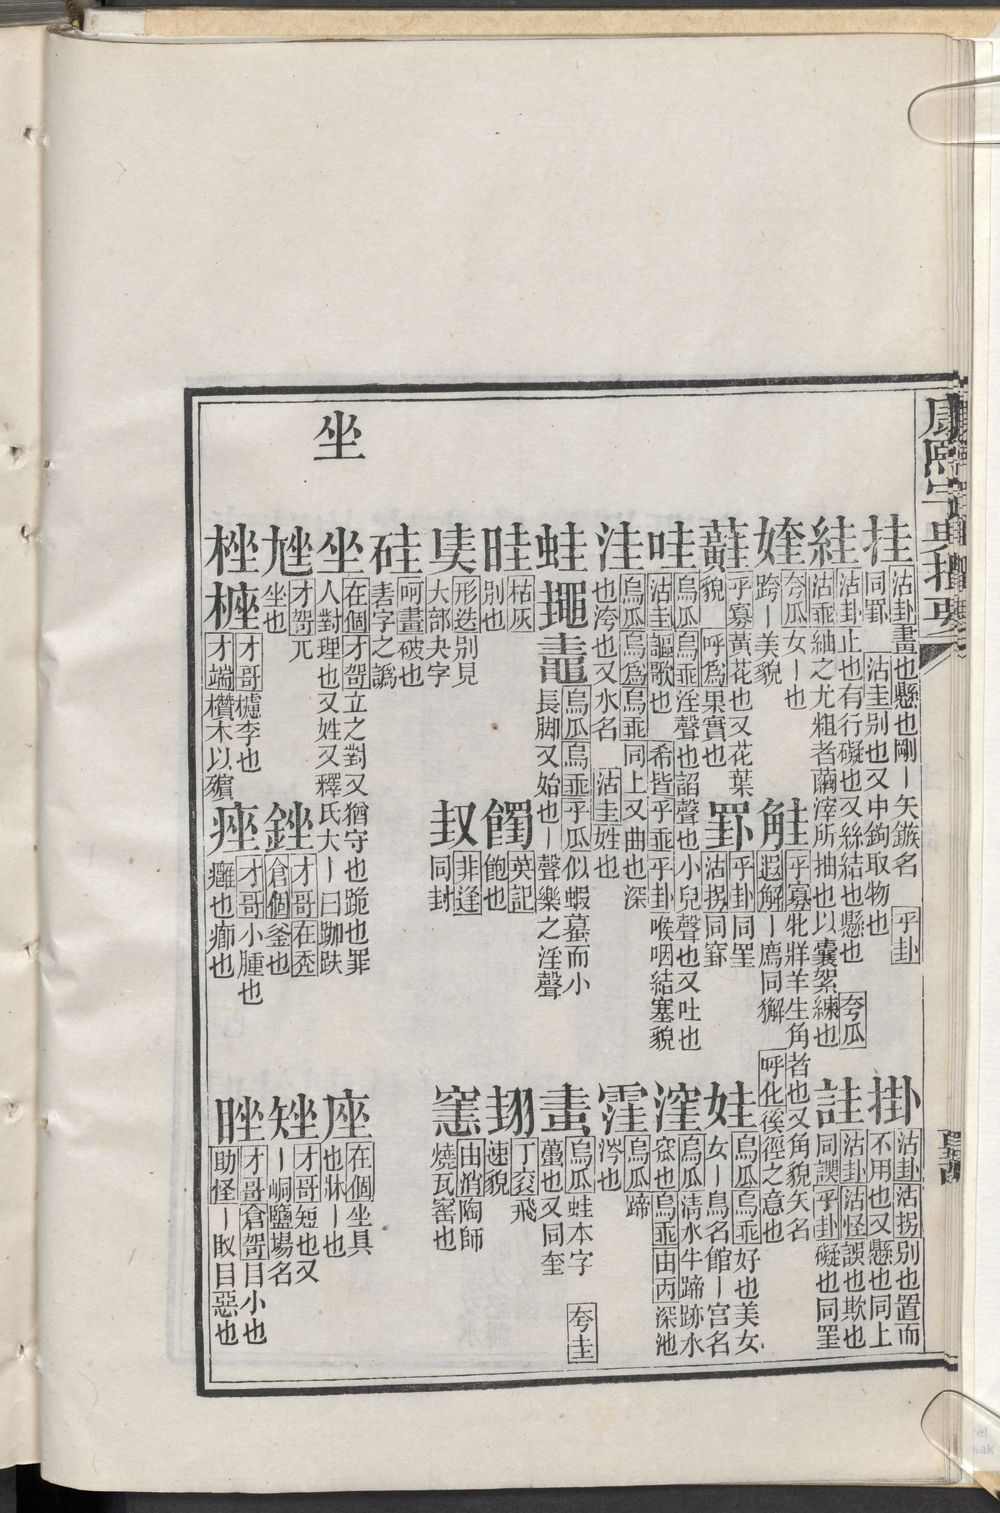 康熙字典撮要
挂
沽卦畫也懸也剛〡矢鏃名　乎卦
同罫　沽圭别也又中鉤取物也
掛
沽卦沽拐别也置而
不用也又懸也同上
絓
沽卦止也有行礙也又絲結也懸也　夸瓜
沽乖紬之尤粗者繭滓所抽也以囊絮練也
詿
沽卦沽怪誤也欺也
同諜乎卦礙也同罣
㛻
夸瓜女〡也
跨〡美貌
觟
乎寡牝牂羊生角者也又角貌矢名
遐解〡廌同獬　呼化徯徑之意也
蘳
乎寡黃花也又花葉
貌　呼爲果實也
罫
乎卦同罣
沽拐同罫
娃
烏瓜烏乖好也美女
女〡鳥名館〡宮名
哇
烏瓜烏乖淫聲也謟聲也小兒聲也又吐也
沽圭謳歌也　希皆乎乖乎卦喉咽結塞貌
漥
烏瓜淸水牛蹄跡水
窊也烏乖由丙深池
洼
烏瓜烏爲烏乖同上又曲也深
也洿也又水名　沽圭姓也
窪
烏瓜蹄
涔也
蛙 䵷
烏瓜烏乖乎瓜似蝦蟇而小
長脚又始也〡聲樂之淫聲
畫
烏瓜蛙本字　夸圭
蠆也又同奎
畦
枯灰
别也
饀
英記
飽也
翃
丁交飛
速貌
㚖
形迭别見
大部夬字
𡊋
非逢
同封
窰
由消陶師
燒瓦窰也
硅
呵畫破也
砉字之譌
坐
坐
在個才哿立之對又猶守也跪也罪
人對理也又姓又釋氏大〡曰跏趺
座
在個坐具
也牀〡也
𡯨
才哿𡯁
坐也
銼
才哥在禿
倉個釜也
矬
才哥短也又
〡峒鹽場名
桽 㯑
才哥櫖李也
才端欑木以殯
痤
才哥小腫也
癰也癤也
睉
才哥倉哿目小也
助怪〡䀛目惡也